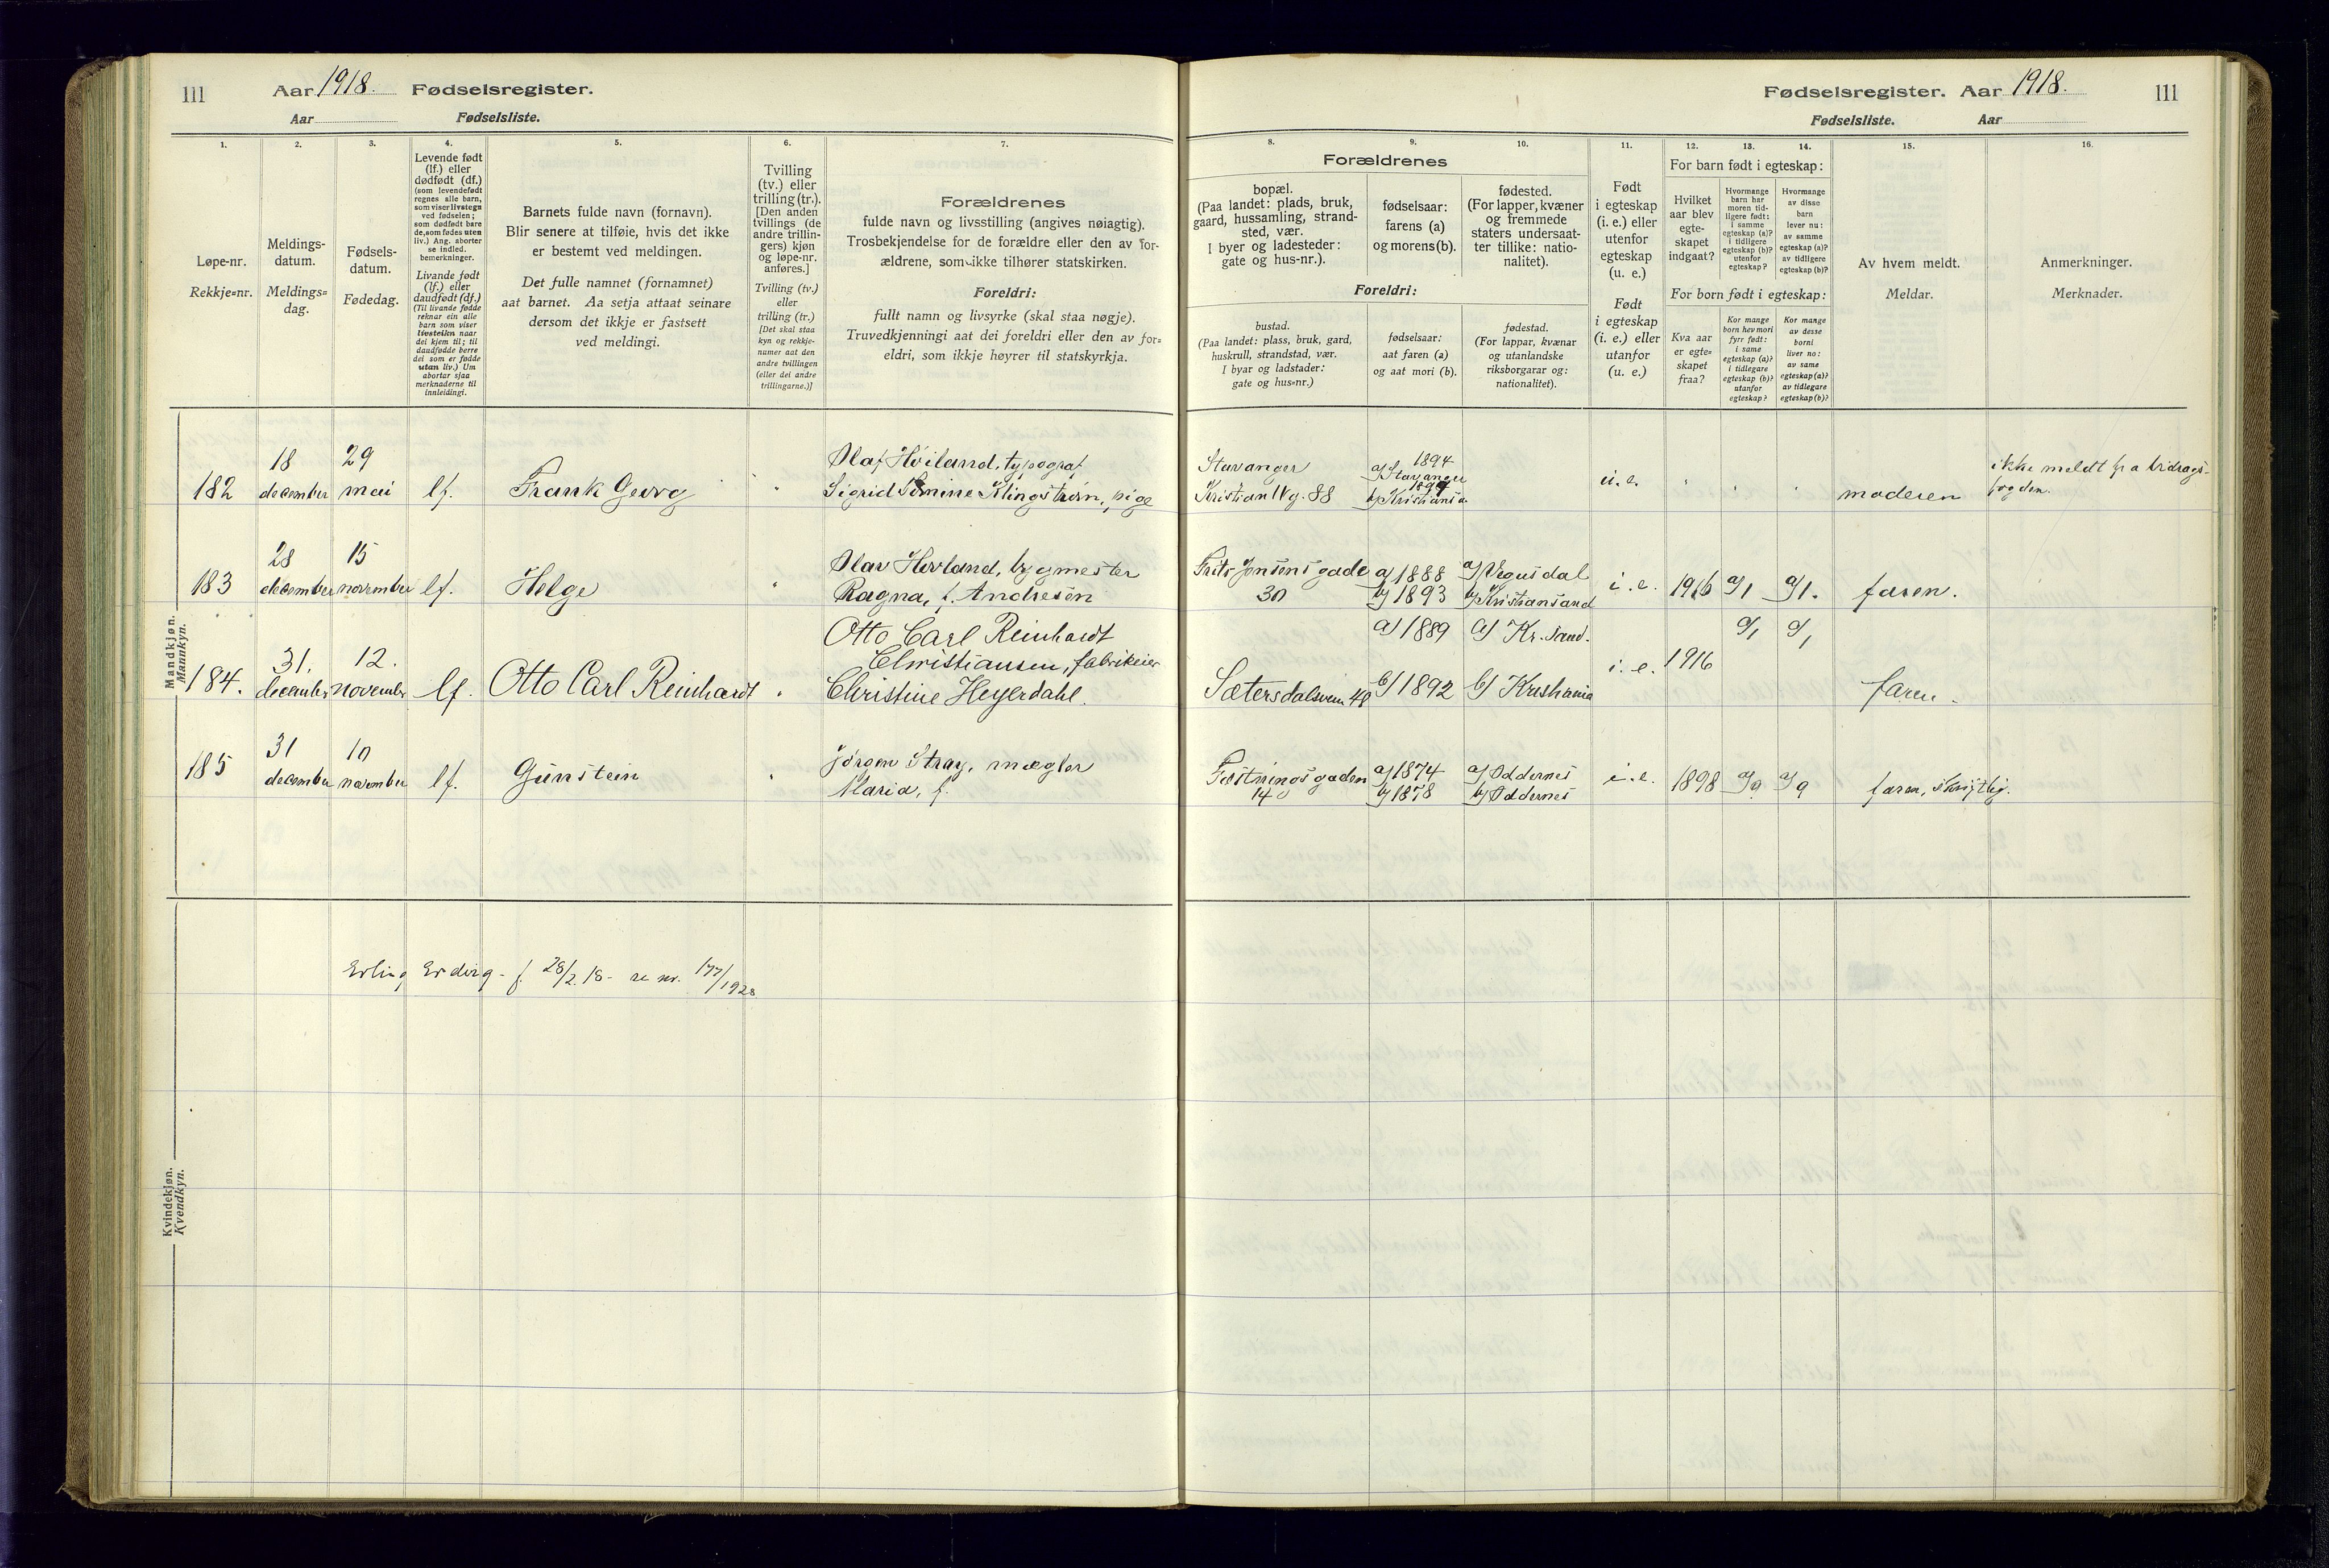 111 Aar 1918. Fødselsregister.
Aar Fødselsliste.
1. 2. 3. 4. 5. 6. 7.
Løpe-nr.
Rekkje=nr.
Meldings-
datum.
Meldings=
dag.
Fødsels-
datum.
Fødedag.
Levende født
(lf.) eller
dødfødt (df.)
(som levendefødt
regnes alle barn,
som viser livstegn
ved fødselen;
som dødfødt bare
de, som fødes uten
liv.) Ang. aborter
se indled.
bemerkninger.
Livande født
(lf.) eller
daudfødt (df.)
(Til livande fødde
reknar ein alle
barn som viser
livsteikn naar
dei kjem til; til
daudfødde berre
dei som er fødde
utan liv.) Um
abortar sjaa
merknaderne til
innleidingi.
Barnets fulde navn (fornavn).
Blir senere at tilføie, hvis det ikke
er bestemt ved meldingen.
Det fulle namnet (fornamnet)
aat barnet. Aa setja attaat seinare
dersom det ikkje er fastsett
ved meldingi.
Tvilling
(tv.) eller
trilling (tr.).
[Den anden
tvillings (de
andre trillin-
gers) kjøn
og løpe-nr.
anføres.]
Tvilling (tv.)
eller
trilling (tr.)
[Det skal staa
kyn og rekkje-
numer aat den
andre tvillingen
(eller dei andre
trillingarne.)]
Forældrenes
fulde navn og livsstilling (angives nøiagtig).
Trosbekjendelse for de forældre eller den av for-
ældrene, som ikke tilhører statskirken.
Foreldri:
fullt namn og livsyrke (skal staa nøgje).
Truvedkjenningi aat dei foreldri eller den av for=
eldri, som ikkje høyrer til statskyrkja.
Mandkjøn.
Mannkyn.
182 18 december 29 mai lf. Frank Georg
Olaf Høiland, typograf
Sigrid Simine Klingstrøm, pige
183 28 december 15 november lf. Helge
Olav Hovland, bygmester
Ragna, f. Andresen
184. 31. december 12. november lf. Otto Carl Reinhardt
Otto Carl Reinhardt
Christiansen, fabrikeier
Christine Heyerdahl.
185 31 december 10 november lf. Gunstein
Jørgen Stray, mægler
Maria, f.
Kvindekjøn.
Kvendkyn.
Erling - f. 28/2.18 - se nr. 177/1928
Fødselsregister. Aar 1918. 111
Fødselsliste. Aar
8. 9. 10. 11. 12. 13. 14. 15. 16.
Forældrenes
bopæl.
(Paa landet: plads, bruk,
gaard, hussamling, strand-
sted, vær.
I byer og ladesteder:
gate og hus-nr.).
fødselsaar:
farens (a)
og morens (b).
fødested.
(For lapper, kvæner
og fremmede
staters undersaat-
ter tillike: natio-
nalitet).
Foreldri:
bustad.
(Paa landet: plass, bruk, gard,
huskrull, strandstad, vær.
I byar og ladstader:
gate og hus=nr.)
fødselsaar:
aat faren (a)
og aat mori (b).
fødestad.
(For lappar, kvænar
og utanlandske
riksborgarar og:
nationalitet).
Født
i egteskap
(i. e.) eller
utenfor
egteskap
(u. e.)
Født
i egteskap
(i. e.) eller
utanfor
(u. e.)
For barn født i egteskap:
Hvilket
aar blev
egte-
skapet
indgaat?
Hvormange
barn har
moren tid-
ligere født:
i samme
egteskap (a)?
i tidligere
egteskap (b)?
utenfor
egteskap?
Hvormange
av disse
barn
lever nu:
av samme
egteskap (a)?
av tidligere
egteskap (b)?
For born født i egteskap:
Kva aar
er egte=
skapet
fraa?
Kor mange
born hev mori
fyrr født:
i same
egteskap (a)?
i tidlegare
egteskap (b)?
utanfor
egteskap?
Kor mange
av desse
borni
liver no:
av same
egteskap (a)?
av tidlegare
egteskap (b)?
Av hvem meldt.
Meldar.
Anmerkninger.
Merknader.
Stavanger a) 1894 Stavanger
Kristian IV g. 88 b) Kristiania u. e. moderen ikke meldt fra bidrags-
fogden.
Frits Jensens gade 30 a) 1888 a) Vegusdal
b) 1893 b) Kristiansand i. e. 1916 a/1 a/1. faren.
a) 1889 a) Kr.sand. a/1 a/1
Sætersdalsveien 48 b) 1892 b) Kristiania i. e. 1916 faren.
Fæstningsgaden 14 a) 1874 a) Oddernes
b) 1878 b) Oddernes i. e. 1898 a/9 a/9 faren, skriftlig.